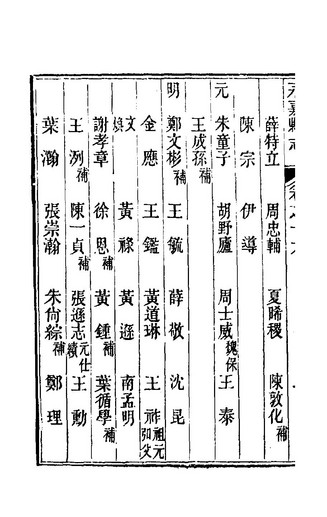 嘉縣志
薛特立 周忠輔 夏晞稷 陳敦化補
陳宗 伊導
元 朱童子 胡野廬 周士威魏保 王泰
王成孫補
明 鄭文彬補 王毓 薛敬 沈昆
金應 王鑑 黃道琳 王祚祖元父
文煥 黃祿 黃遜 南孟明
謝孝章 徐恩補 黃鍾補 葉循學補
王洌補 陳一貞補 張遜志元仕績 王勳
葉瀚 張崇瀚 朱尙綜補 鄭理